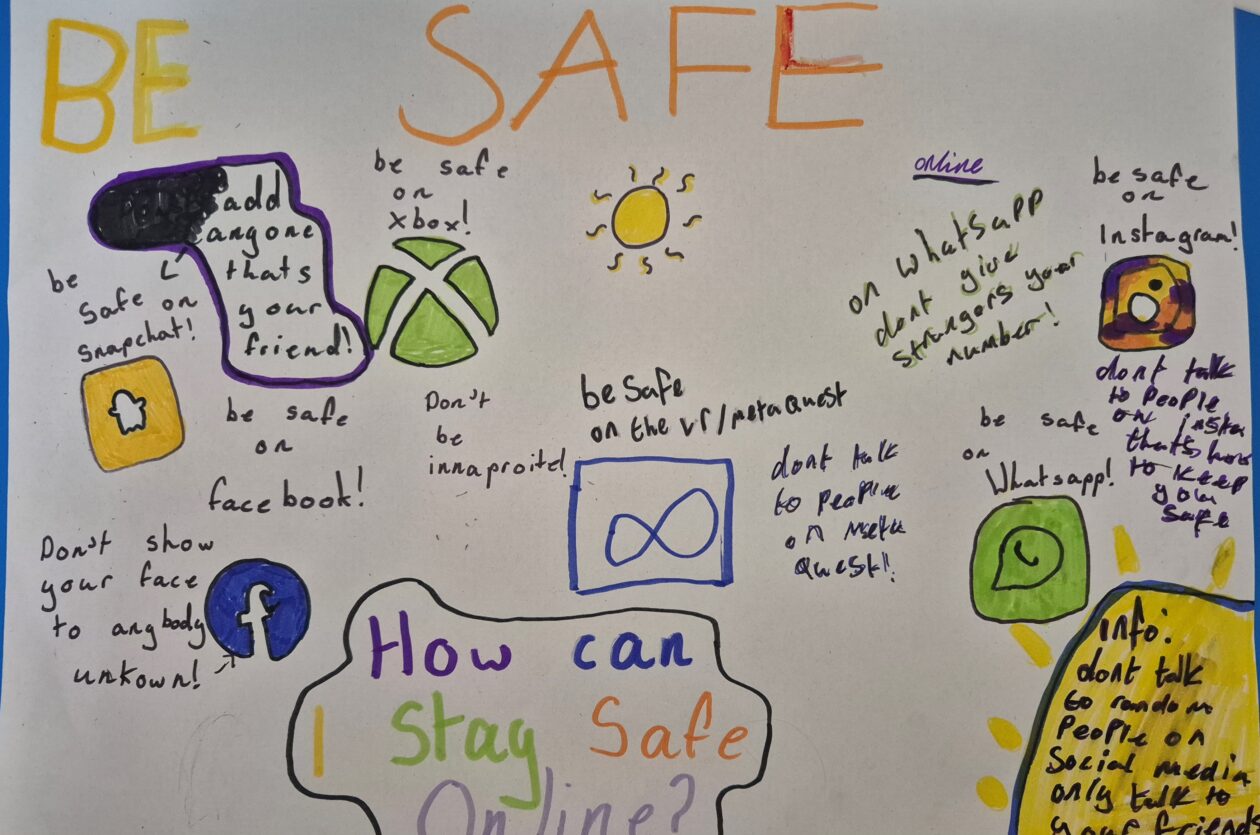 BE SAFE
add
anyone
thats
your
friend!
be safe
on
xbox!
online
be safe
on
Instagram!
on whatsapp
dont give
strangors your
number!
be
safe on
snapchat!
dont talk
to people
on insta
thats how
to keep
you
safe
be safe
on
facebook!
Don't
be
innaproite!
be Safe
on the vr/metaquest
dont talk
to people
on meta
quest!
be safe
on
Whatsapp!
Don't show
your face
to anybody
unkown!
f
How can
I stay safe
Online?
info:
dont talk
to random
people on
Social media
only talk to
your friends